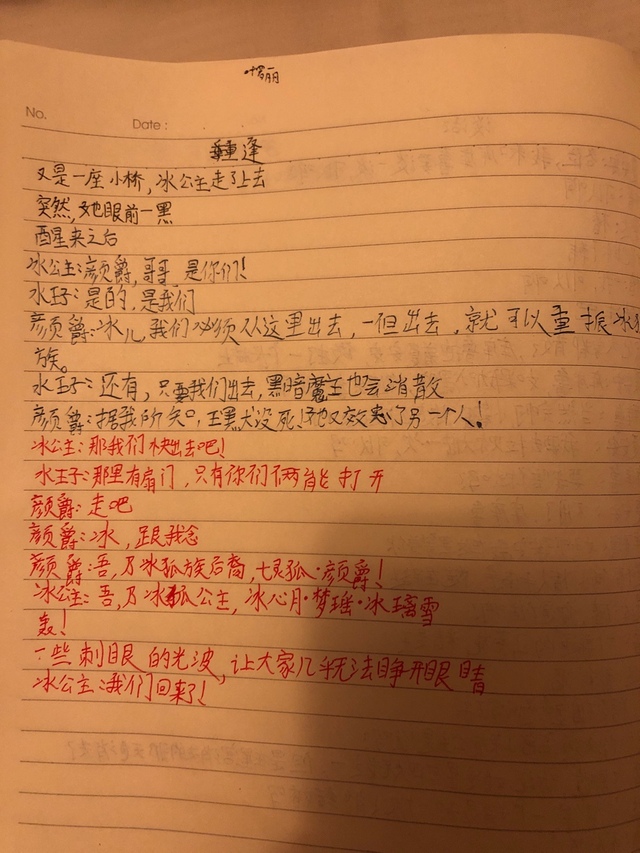 罗丽
No.
Date:
重逢
又是一座小桥，冰公主走了上去
突然，她眼前一黑
醒来之后
冰公主：颜爵，哥哥，是你们！
水王子：是的，是我们
颜爵：冰儿，我们必须从这里出去，一但出去，就可以重振冰狐
族。
水王子：还有，只要我们出去，黑暗魔王也会消散
颜爵：据我所知，王黑犬没死！他又效忠了另一个人！
冰公主：那我们快出去吧！
水王子：那里有扇门，只有你们俩能打开
颜爵：走吧
颜爵：冰，跟我念
颜爵：吾，乃冰狐族后裔，七灵狐·颜爵！
冰公主：吾，乃冰狐公主，冰心月·梦瑶·冰璃雪
轰！
一些刺眼的光波，让大家几乎无法睁开眼睛
冰公主：我们回来了！